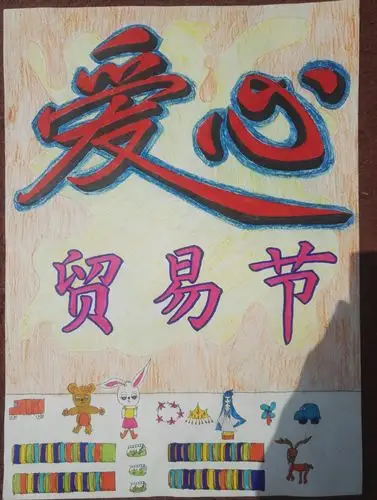 爱心
贸易节